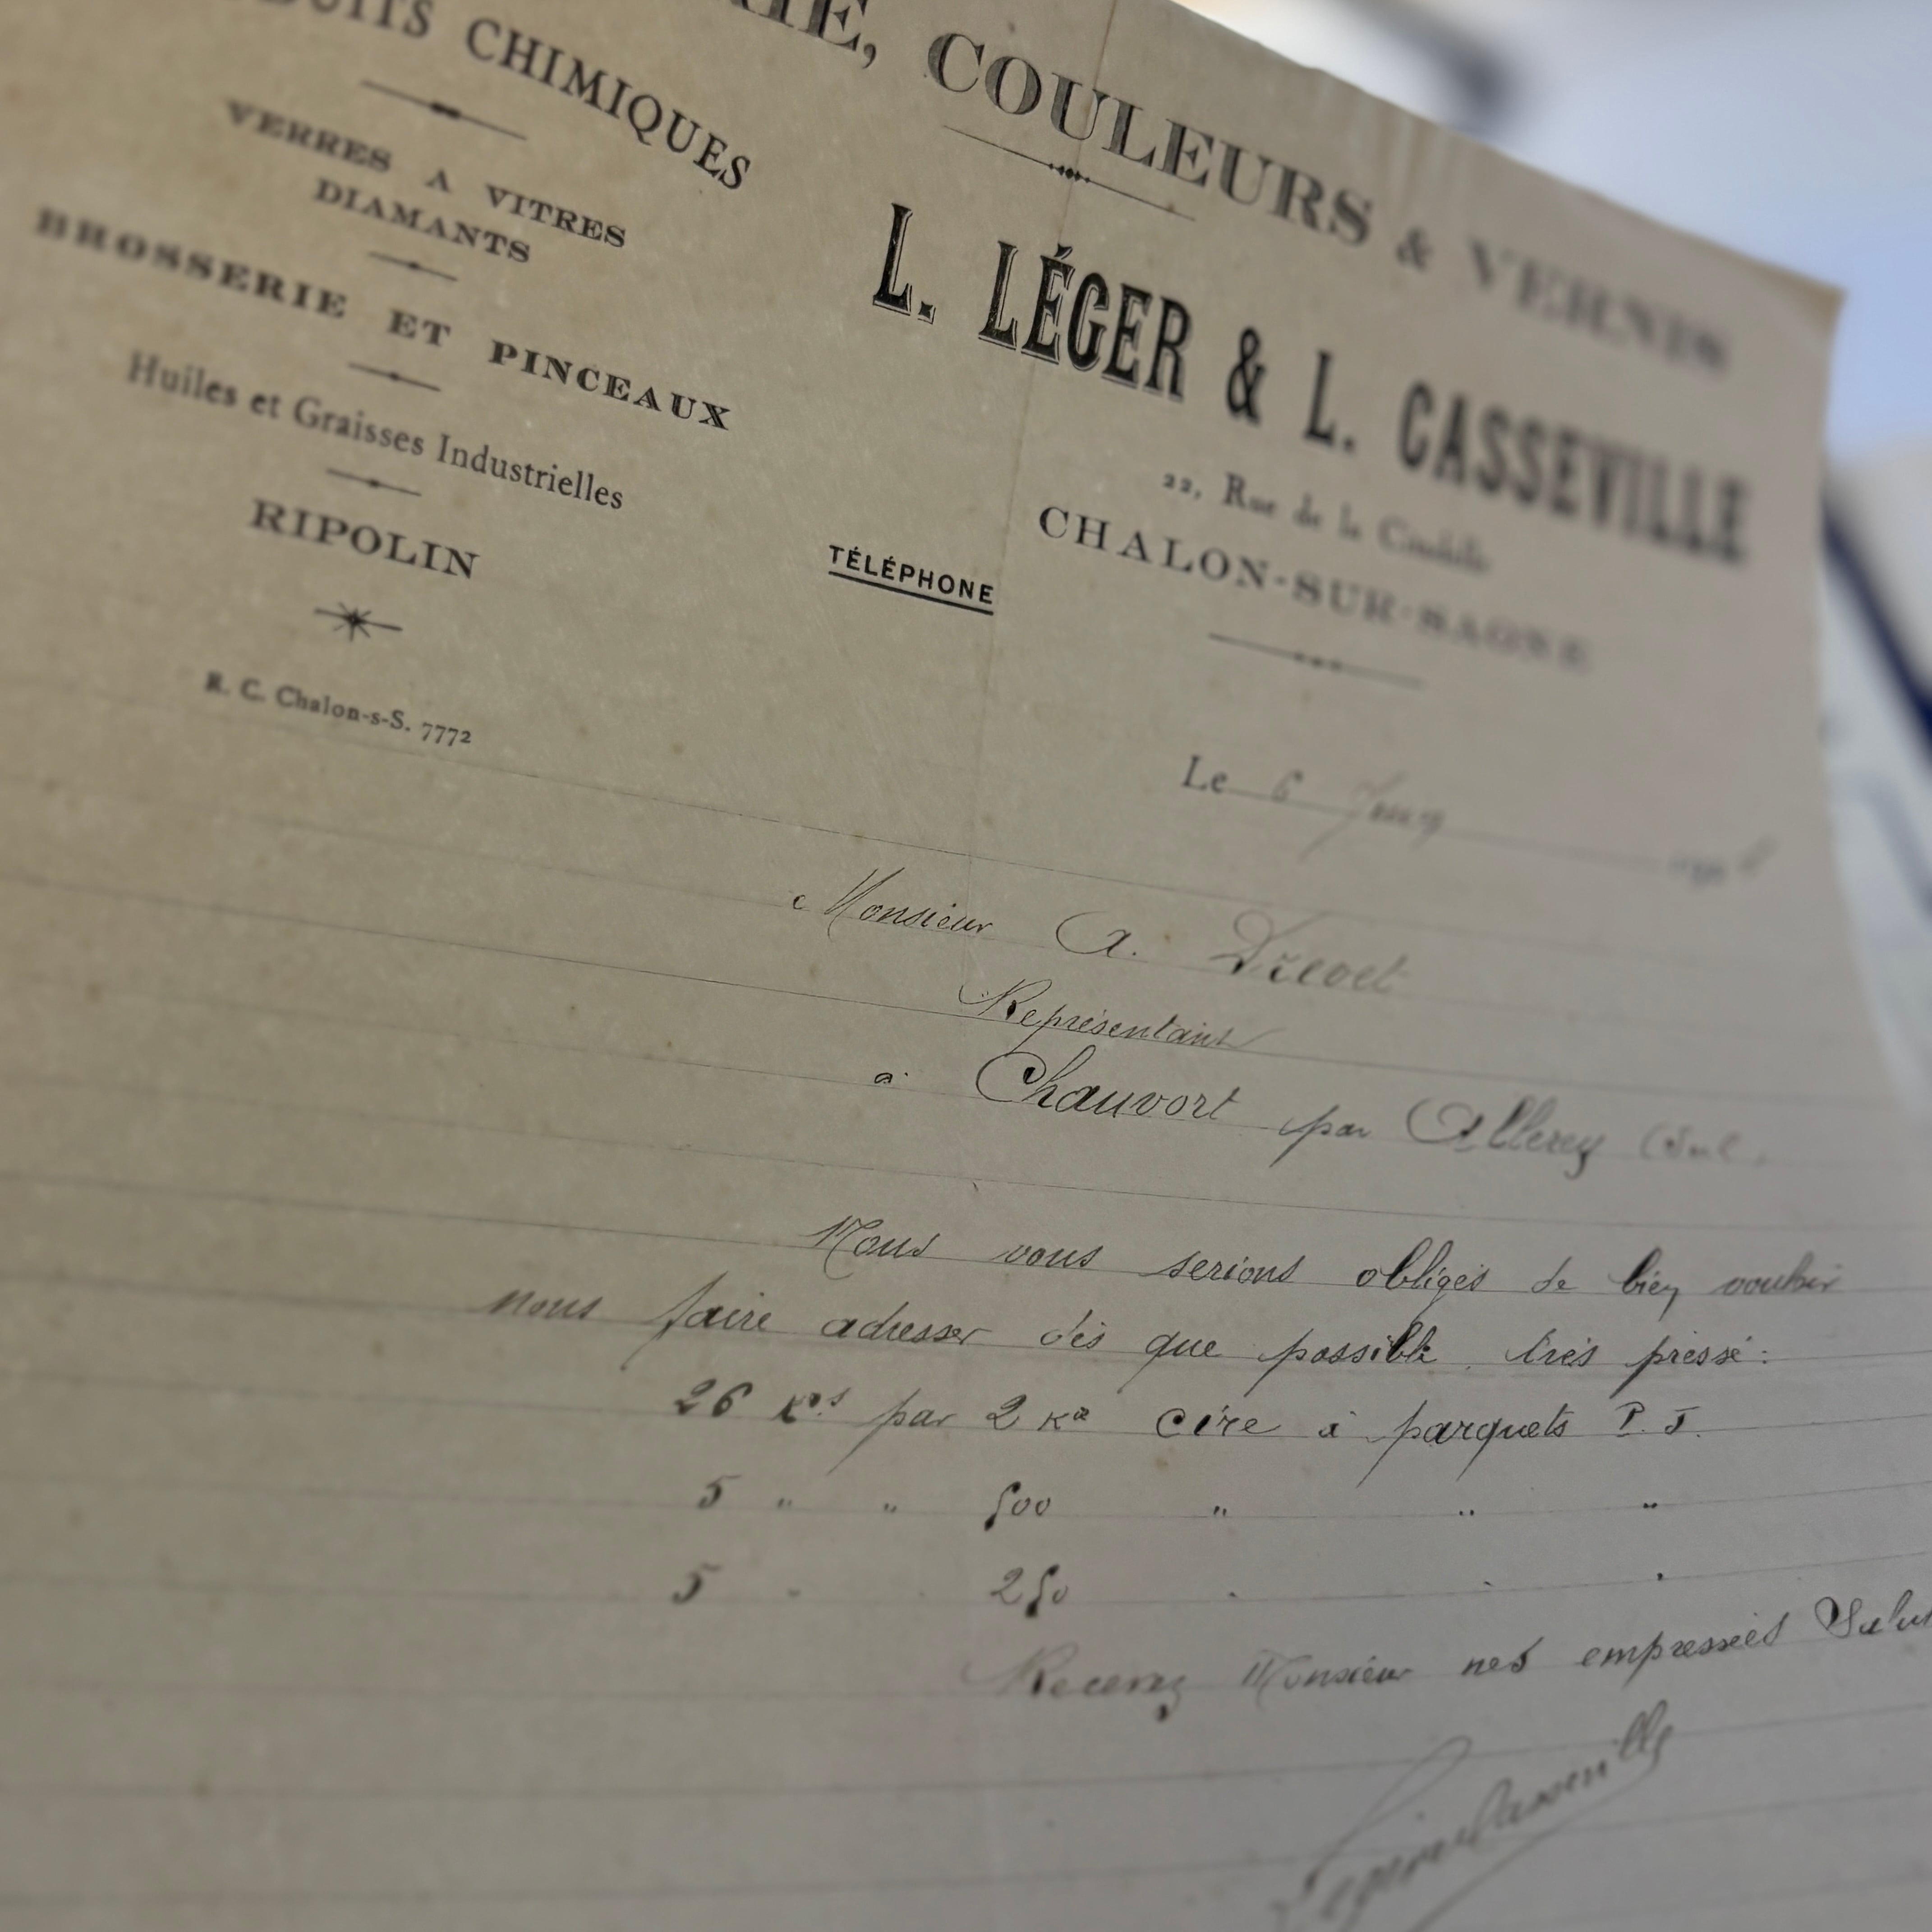 CHIMIQUES
VERRES A VITRES
DIAMANTS
BROSSERIE ET PINCEAUX
Huiles et Graisses Industrielles
RIPOLIN
R. C. Chalon-s-S. 7772
COULEURS & VERNIS
L. LÉGER & L. CASSEVILLE
22, Rue de la
CHALON-SUR-SAONE
TÉLÉPHONE
Le 6
Monsieur A.
Représentant
à Chauvort par Allerey
Nous vous serions obligés de bien vouloir
nous faire adresser dès que possible, très pressé :
26 Kos par 2 Ko cire à parquets P. J.
5 " " 500 " " "
5 " " 250 " " "
Recevez Monsieur nos empressées